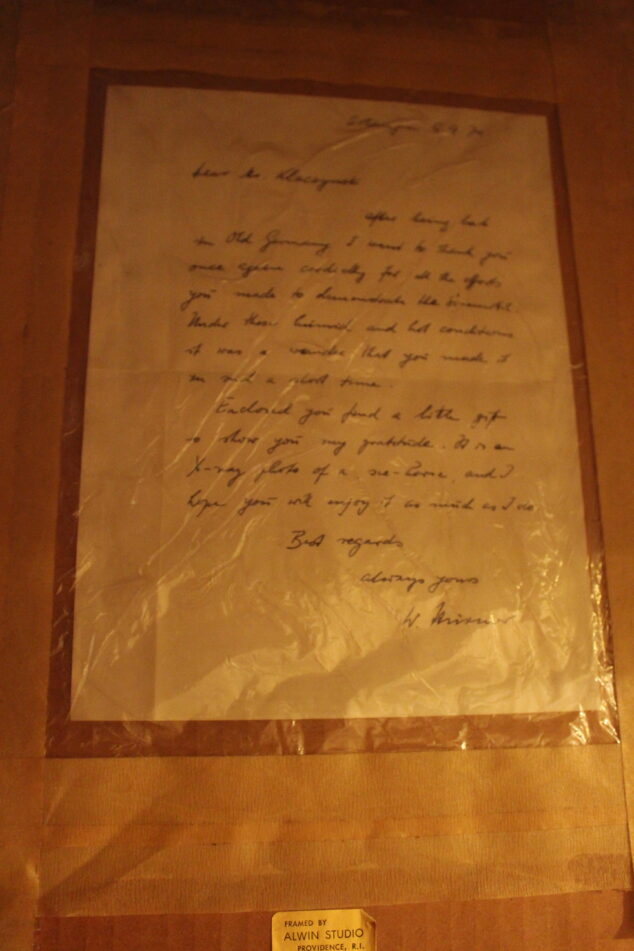 Dear Mr.
after being back
in Old Germany I want to thank you
once again cordially for all the efforts
you made to demonstrate the
Under these humid and hot conditions
it was a wonder that you made it
in such a short time.
Enclosed you find a little gift
to show you my gratitude. It is an
X-ray photo of a sea-horse, and I
hope you will enjoy it as much as I do
Best regards
always yours
W.
FRAMED BY
ALWIN STUDIO
PROVIDENCE, R.I.